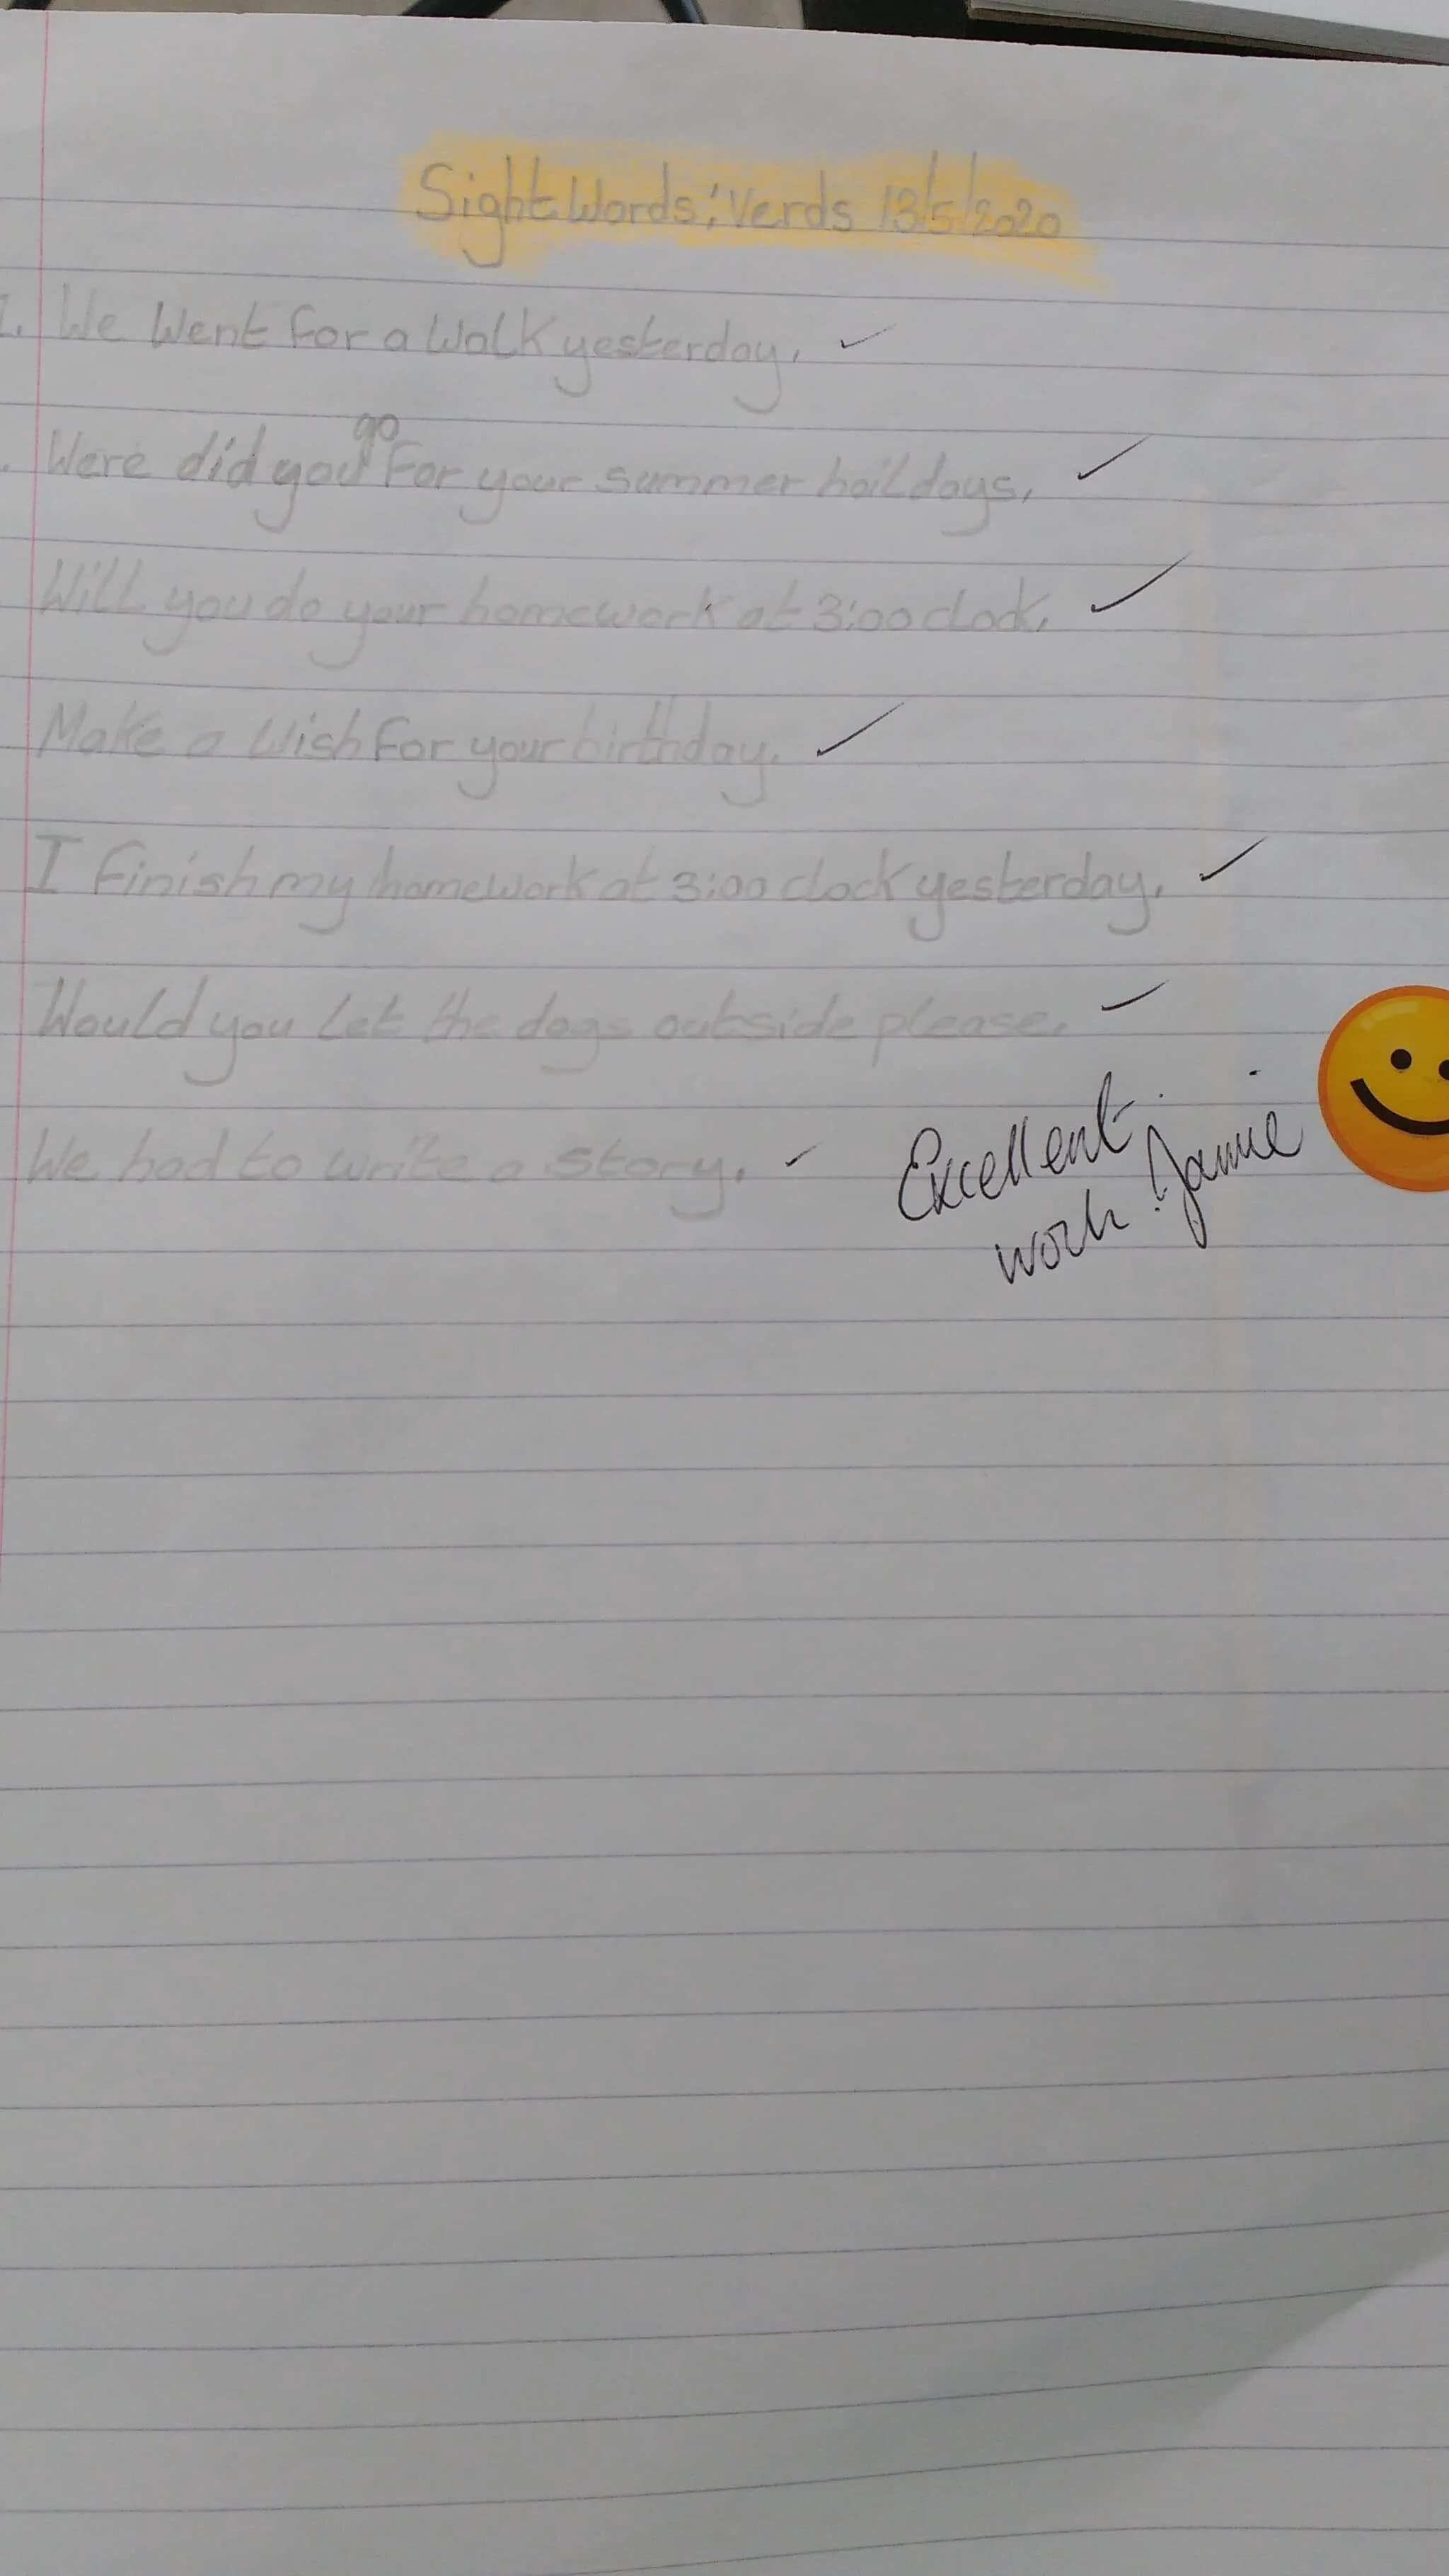 Sight Words: Verds 13/5/2020
1. We Went for a Walk yesterday.
go
. Were did you for your summer hoildays.
Will you do your homework at 3:00 clock.
Make a Wish for your birthday.
I finish my homework at 3:00 clock yesterday.
Would you let the dogs outside please.
We had to write a story.
Excellent
work! Jamie